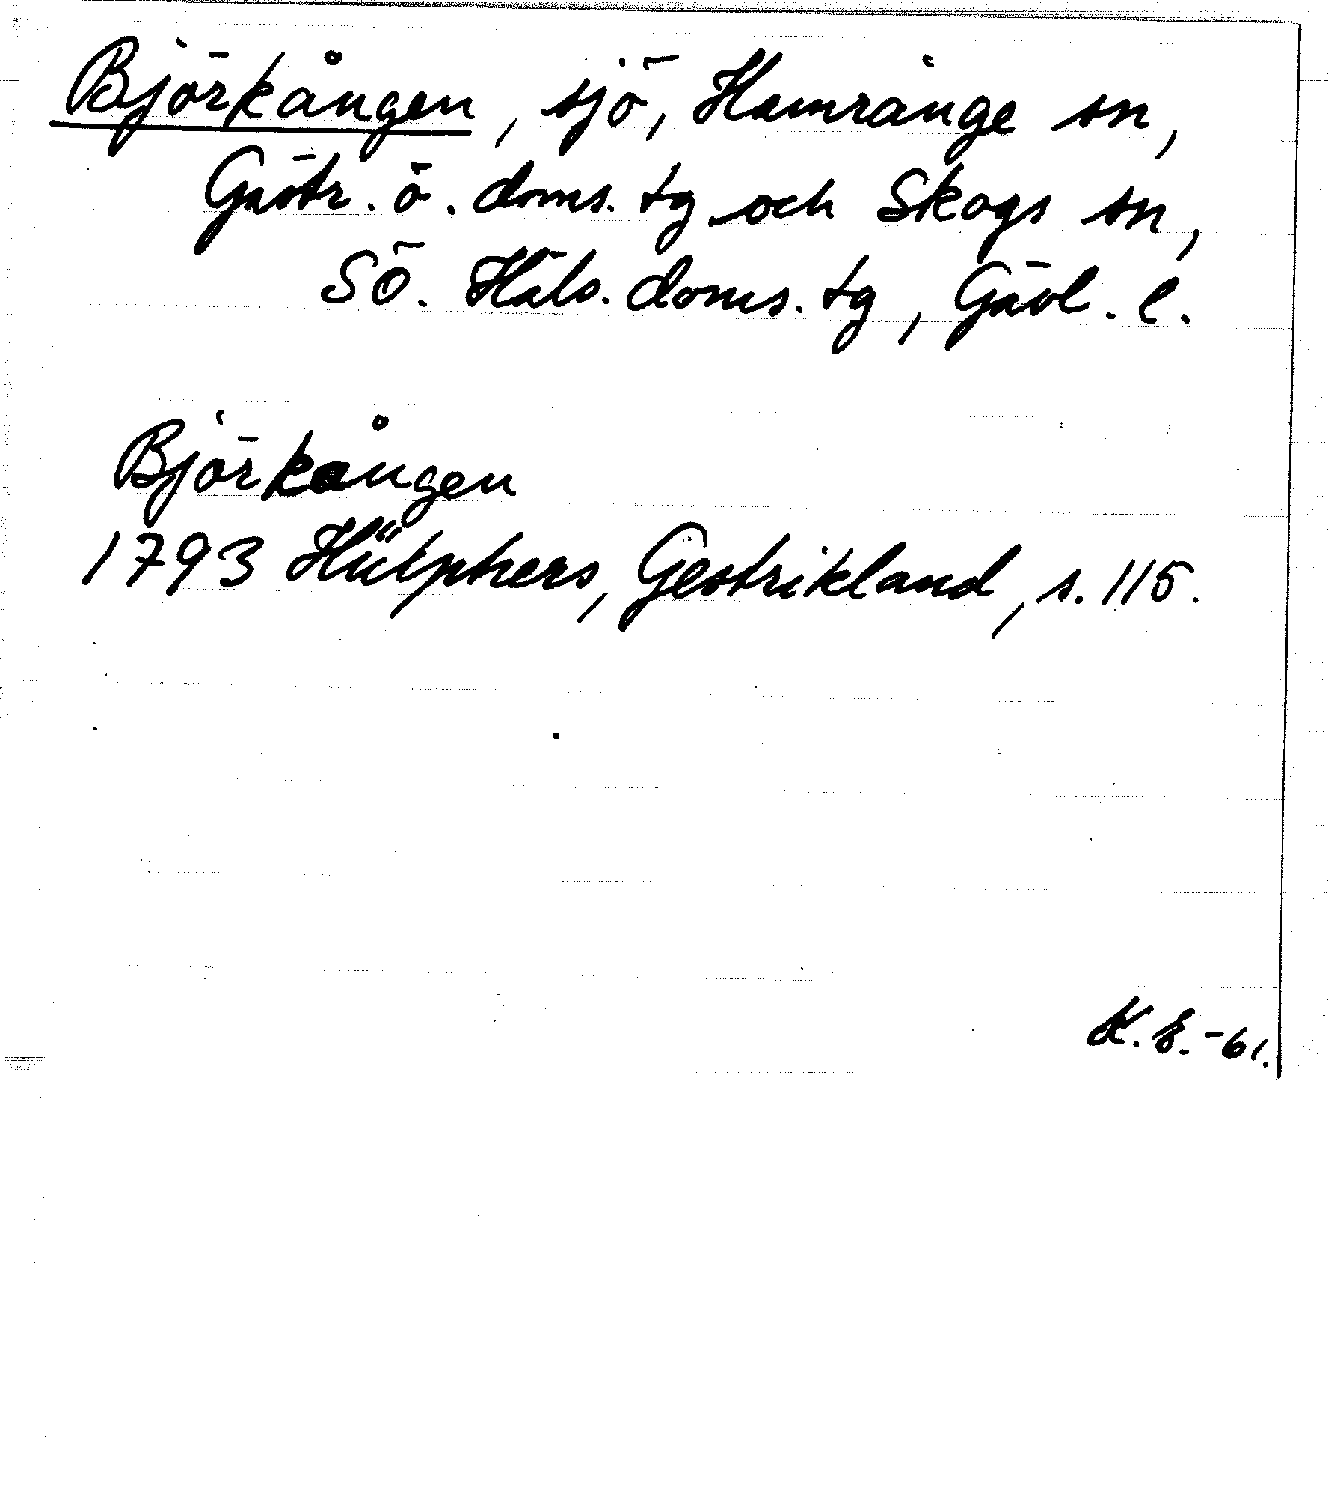 Björkången, sjö, Hamrånge sn,
Gästr. ö. doms. tg och Skogs sn,
Sö. Häls. doms. tg, Gävl. l.
Björkången
1793 Hülphers, Gestrikland, s. 115.
K. E. -61.